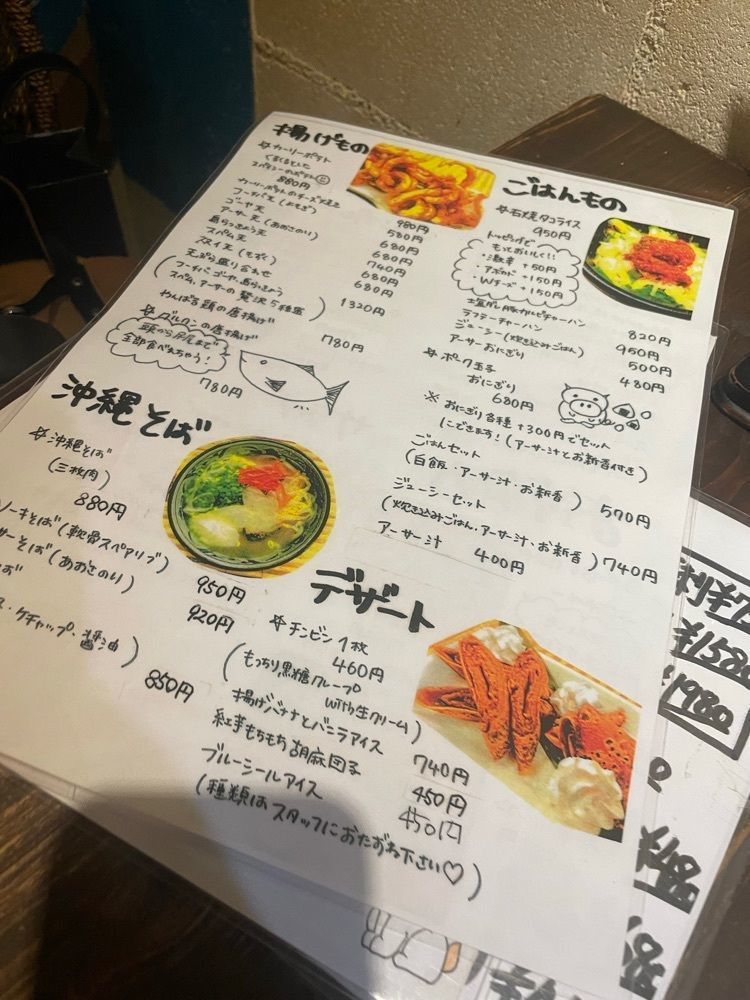 揚げもの
カーリーポテト
スパイシーのポテト
880円
カーリーポテトのチーズ焼き 980円
フーチバ天(よもぎ) 580円
ゴーヤ天 680円
アーサ天(あおさのり) 680円
島らっきょう天 740円
スパム天 680円
スヌイ天(もずく) 680円
天ぷら盛り合わせ
(フーチバ・ゴーヤ・島らっきょう
スパム・アーサーの贅沢5種盛) 1320円
やんばる鶏の唐揚げ 780円
グルクンの唐揚げ
頭から尻尾まで
全部食べれちゃう!
780円
ごはんもの
石焼タコライス
950円
トッピングで
もっとおいしく!!
・激辛 +50円
・アボカド +150円
・Wチーズ +150円
チャーハン 820円
ラフテーチャーハン 950円
ジューシー(炊き込みごはん) 500円
アーサーおにぎり 480円
ポーク玉子
おにぎり
680円
※おにぎり各種+300円でセット
にできます!(アーサー汁とお新香付き)
ごはんセット
(白飯・アーサー汁・お新香) 570円
ジューシーセット
(炊き込みごはん・アーサー汁・お新香) 740円
アーサー汁 400円
沖縄そば
沖縄そば
(三枚肉)
880円
ソーキそば(軟骨スペアリブ) 950円
サーそば(あおさのり) 920円
そば
ス・ケチャップ・醤油) 850円
デザート
チンビン1枚
460円
(もっちり黒糖クレープ
with生クリーム)
揚げバナナとバニラアイス 740円
紅芋もちもち胡麻団子 450円
ブルーシールアイス 450円
(種類はスタッフにおたずね下さい♡)
1980